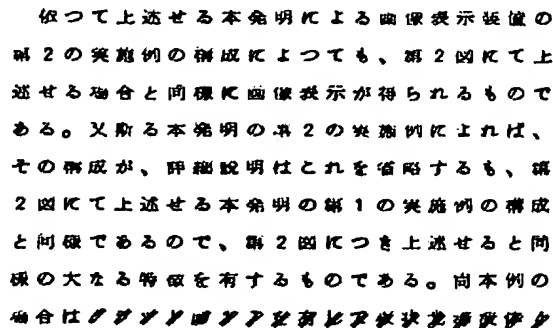 依つて上述せる本発明による画像表示装置の
第2の実施例の構成によつても、第2図にて上
述せる場合と同様に画像表示が得られるもので
ある。又斯る本発明の第2の実施例によれば、
その構成が、詳細説明はこれを省略するも、第
2図にて上述せる本発明の第1の実施例の構成
と同様であるので、第2図につき上述せると同
様の大なる特徴を有するものである。尚本例の
場合は